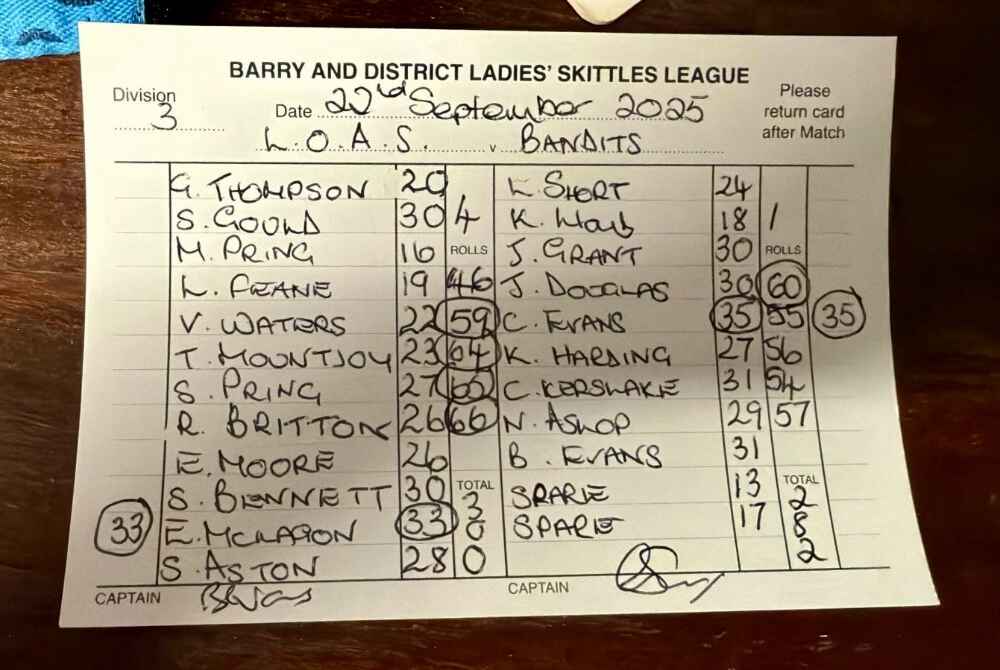 BARRY AND DISTRICT LADIES' SKITTLES LEAGUE
Division 3
Date 22nd September 2025
Please return card after Match
L.O.A.S. v BANDITS
G. THOMPSON 20 L. SHORT 24
S. GOULD 30 4 K. 18 1
M. PRING 16 ROLLS J. GRANT 30 ROLLS
L. FEANE 19 46 J. DOUGLAS 30 60
V. WATERS 22 59 C. EVANS 35 55 35
T. MOUNTJOY 23 64 K. HARDING 27 56
S. PRING 27 65 C. KERSLAKE 31 54
R. BRITTON 26 66 N. ASHOP 29 57
E. MOORE 26 B. EVANS 31
S. BENNETT 30 TOTAL 3 SPARE 13 TOTAL 2
33 E. MCLAGON 33 0 SPARE 17 8
S. ASTON 28 0 2
CAPTAIN CAPTAIN